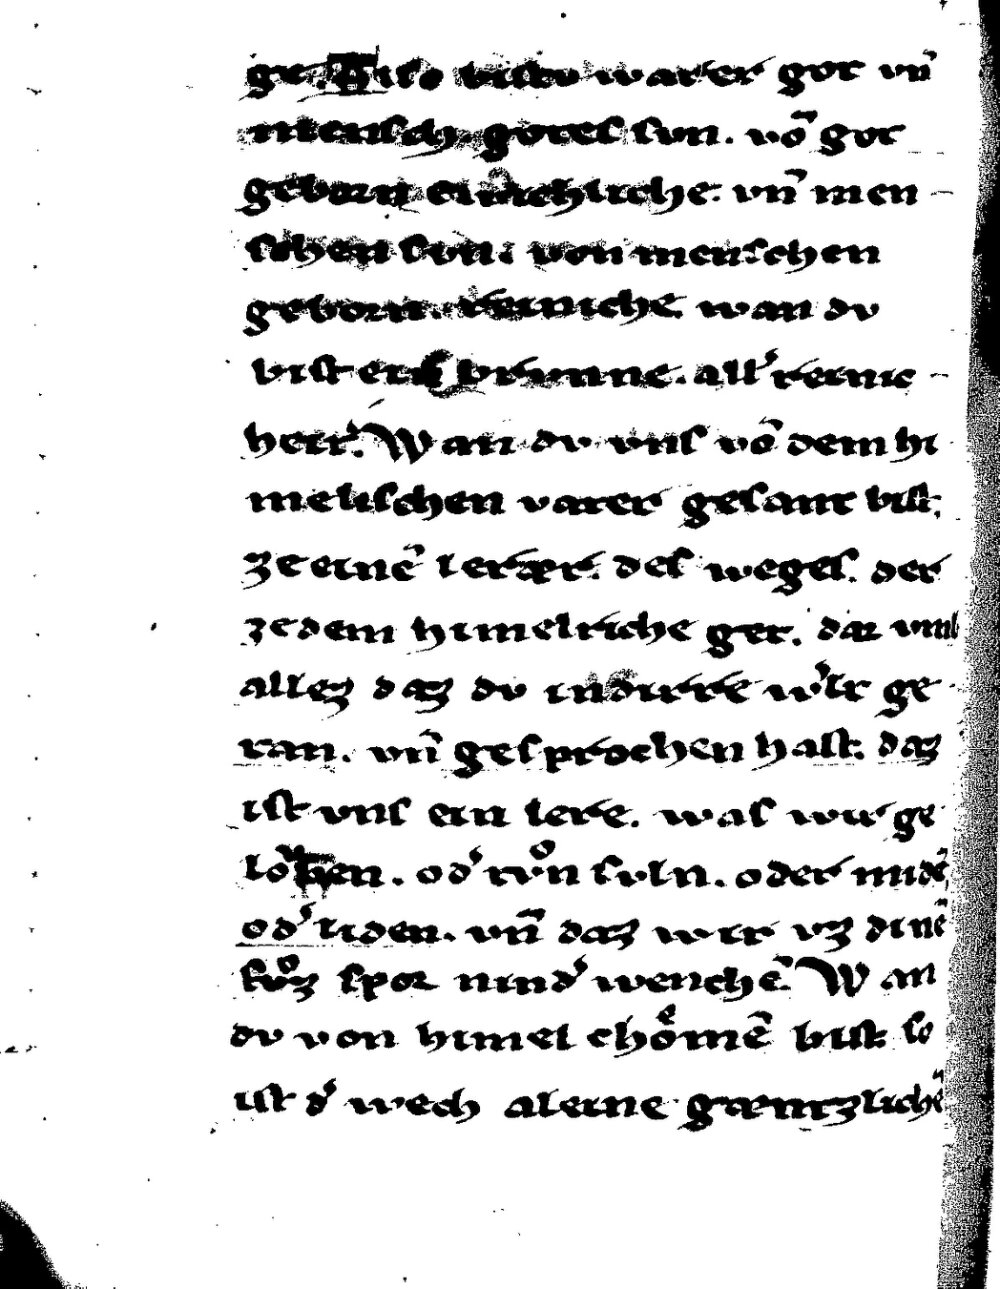 ge. Also bistu warer got vn̄
mensch. gotes sun. vō got
geborn ewichliche. vn̄ men
schen sun. von menschen
geborn. reiniche. wan du
bist ein brunne. all' reinic
heit. Wan du uns vō dem hi
melischen vater gesant bist.
ze einē lerær. des weges. der
ze dem himelriche get. dar vmb
allez daz du in dirre w'lt ge
tan. vn̄ gesprochen hast. daz
ist vns ein lere. was wir ge
loͮben. od' tuͦn suln. oder midē.
od' liden. vn̄ daz wir vz dinē
fuͦz spor nind' wenchē. Wan
du von himel choͤmē bist. so
ist d' wech aleine gæntzlichē